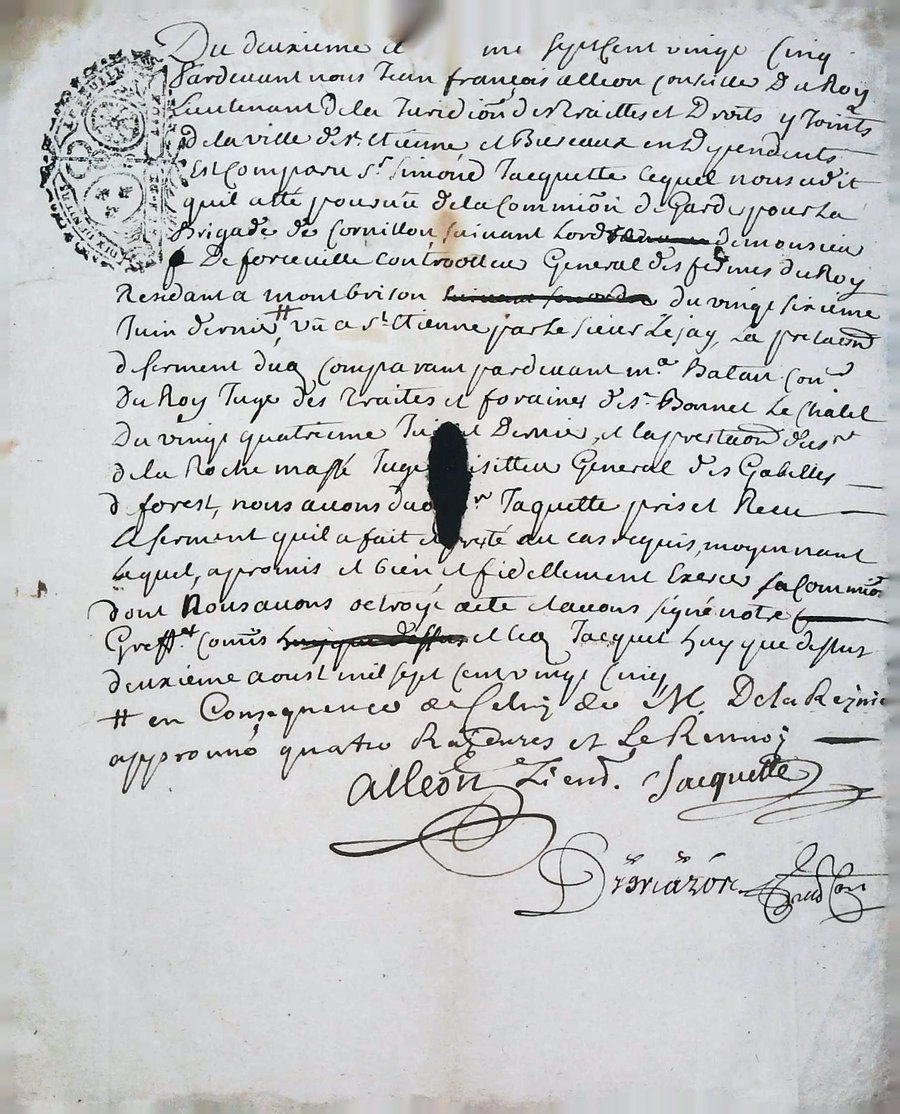 Du deuxieme me sept Cent vingt Cinq
Pardeuant nous Jean françois alleon Conseille Du Roy
Lieutenant de la Juridiōn des Traittes et Droits y Joints
de la ville de st. etienne et Bureaux en Dependents
Est Comparu sr. Simond Jacquette lequel nous a dit
quil a esté pourvu de la Commiōn de Garde pour La
Brigade de Cornillon suiuant Lordre de monsieur
De forceuille Controolleur General des fermes du Roy
Residant a montbrison du vingt sixieme
Juin dernier # vû a st. etienne par le sieur Lejay, La prestaōn
de serment dud Comparant pardeuant me. Batail Con.er
du Roy Juge des Traites et foraines de st. Bonnet Le Chatel
du vingt quatrieme Dernier, et la prestaōn du sr
de la Roche massé Juge visitteur General des Gabelles
de forest, nous auons dud sr Jaquette pris et Receu
Le serment quil a fait et presté au cas requis, moyennant
Lequel, a promis et bien et fidellement Exercer sa Commiōn
dont Nous auons octroyé acte et auons signé notre
Greff.er Comis et led Jacquet huy que dessus
deuxieme aoust mil sept Cent vingt Cinq
# en Consequence de Celuy de M. De la Reynie
approuué quatre Ratures et Le Renuoy
alleon Lieud. Jacquette